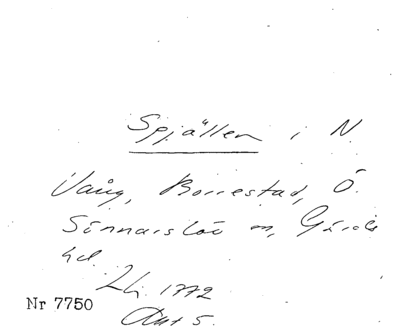 Spjällen i N
Vång, Borrestad, Ö.
Sönnarslöv sn, Gärds
hd.
Lh. 1772
Akt 5.
Nr 7750